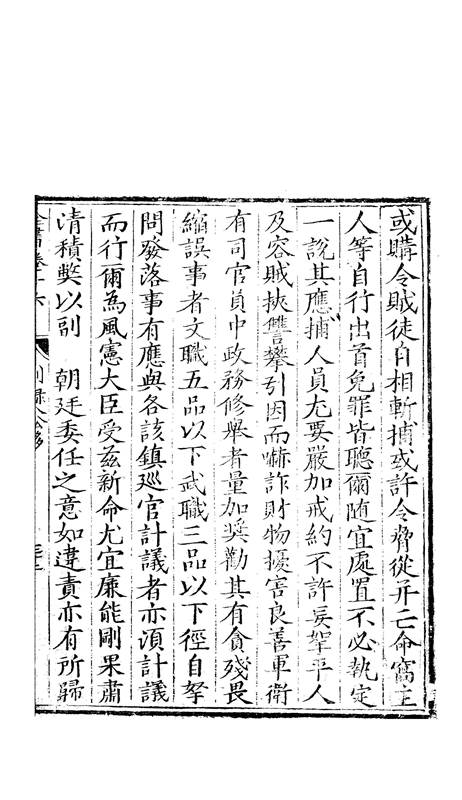 或購令賊徒自相斬捕或許令脅從并亡命窩主
人等自行出首免罪皆聽爾随宜處置不必執定
一說其應捕人員尤要嚴加戒約不許妄拏平人
及容賊挾讐攀引因而嚇詐財物擾害良善軍衛
有司官員中政務修舉者量加奬勸其有貪殘畏
縮誤事者文職五品以下武職三品以下徑自拏
問發落事有應與各該鎮巡官計議者亦須計議
而行爾為風憲大臣受兹新命尤宜廉能剛果肅
清積獘以副　朝廷委任之意如違責亦有所歸
全書卷十六　別錄八公移